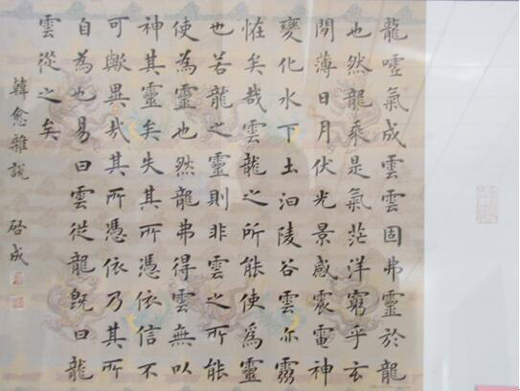 龍噓氣成雲雲固弗靈於龍
也然龍乘是氣茫洋窮乎玄
間薄日月伏光景感震電神
變化水下土汩陵谷雲亦靈
恠矣哉雲龍之所能使爲靈
也若龍之靈則非雲之所能
使為靈也然龍弗得雲無以
神其靈矣失其所憑依信不
可歟異哉其所憑依乃其所
自為也易曰雲從龍既曰龍
雲從之矣
韓愈雜說 啓成